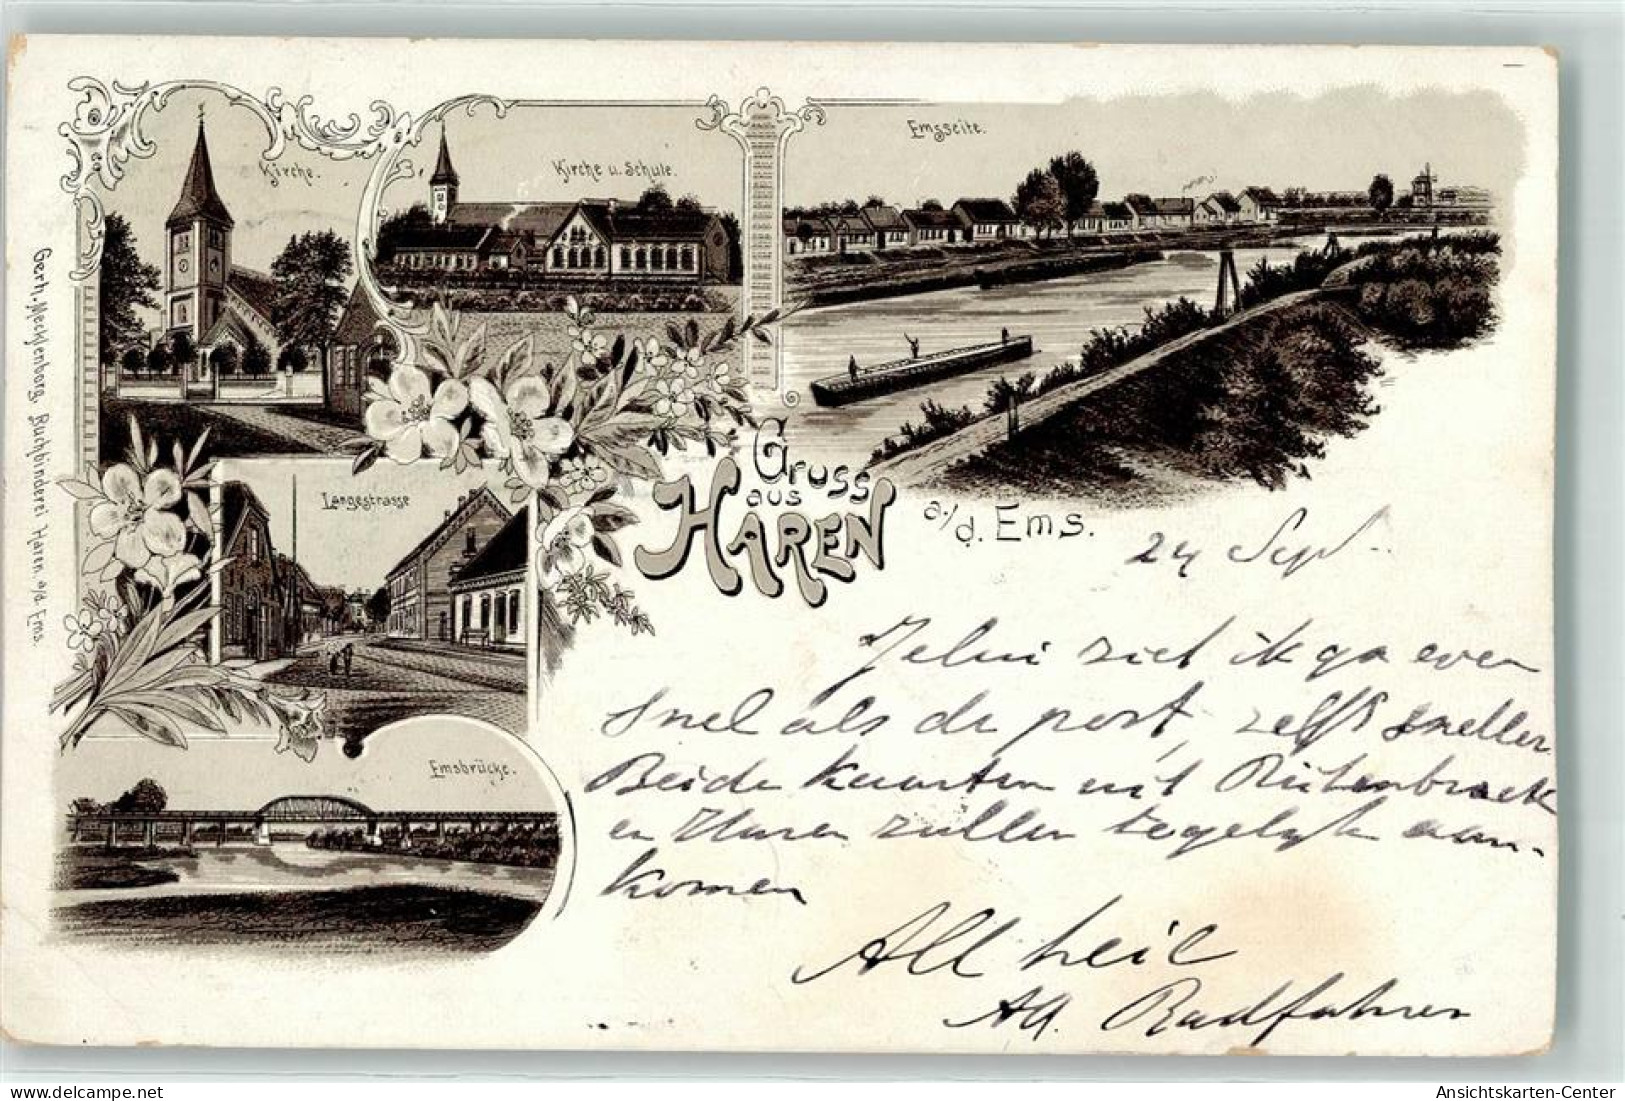 Kirche.
Kirche u. Schule.
Emsseite.
Langestrasse
Emsbrücke.
Gruss
aus
HAREN
a./d. Ems.
Gerh. Mecklenborg, Buchbinderei Haren a/d. Ems.
24 Sept.
ziet ik ga even
snel als de post, zelfs sneller
Beide kaarten uit Rütenbrock
en Haren zullen tegelijk aan-
komen
All heil
All. Radfahrer
Ansichtskarten-Center